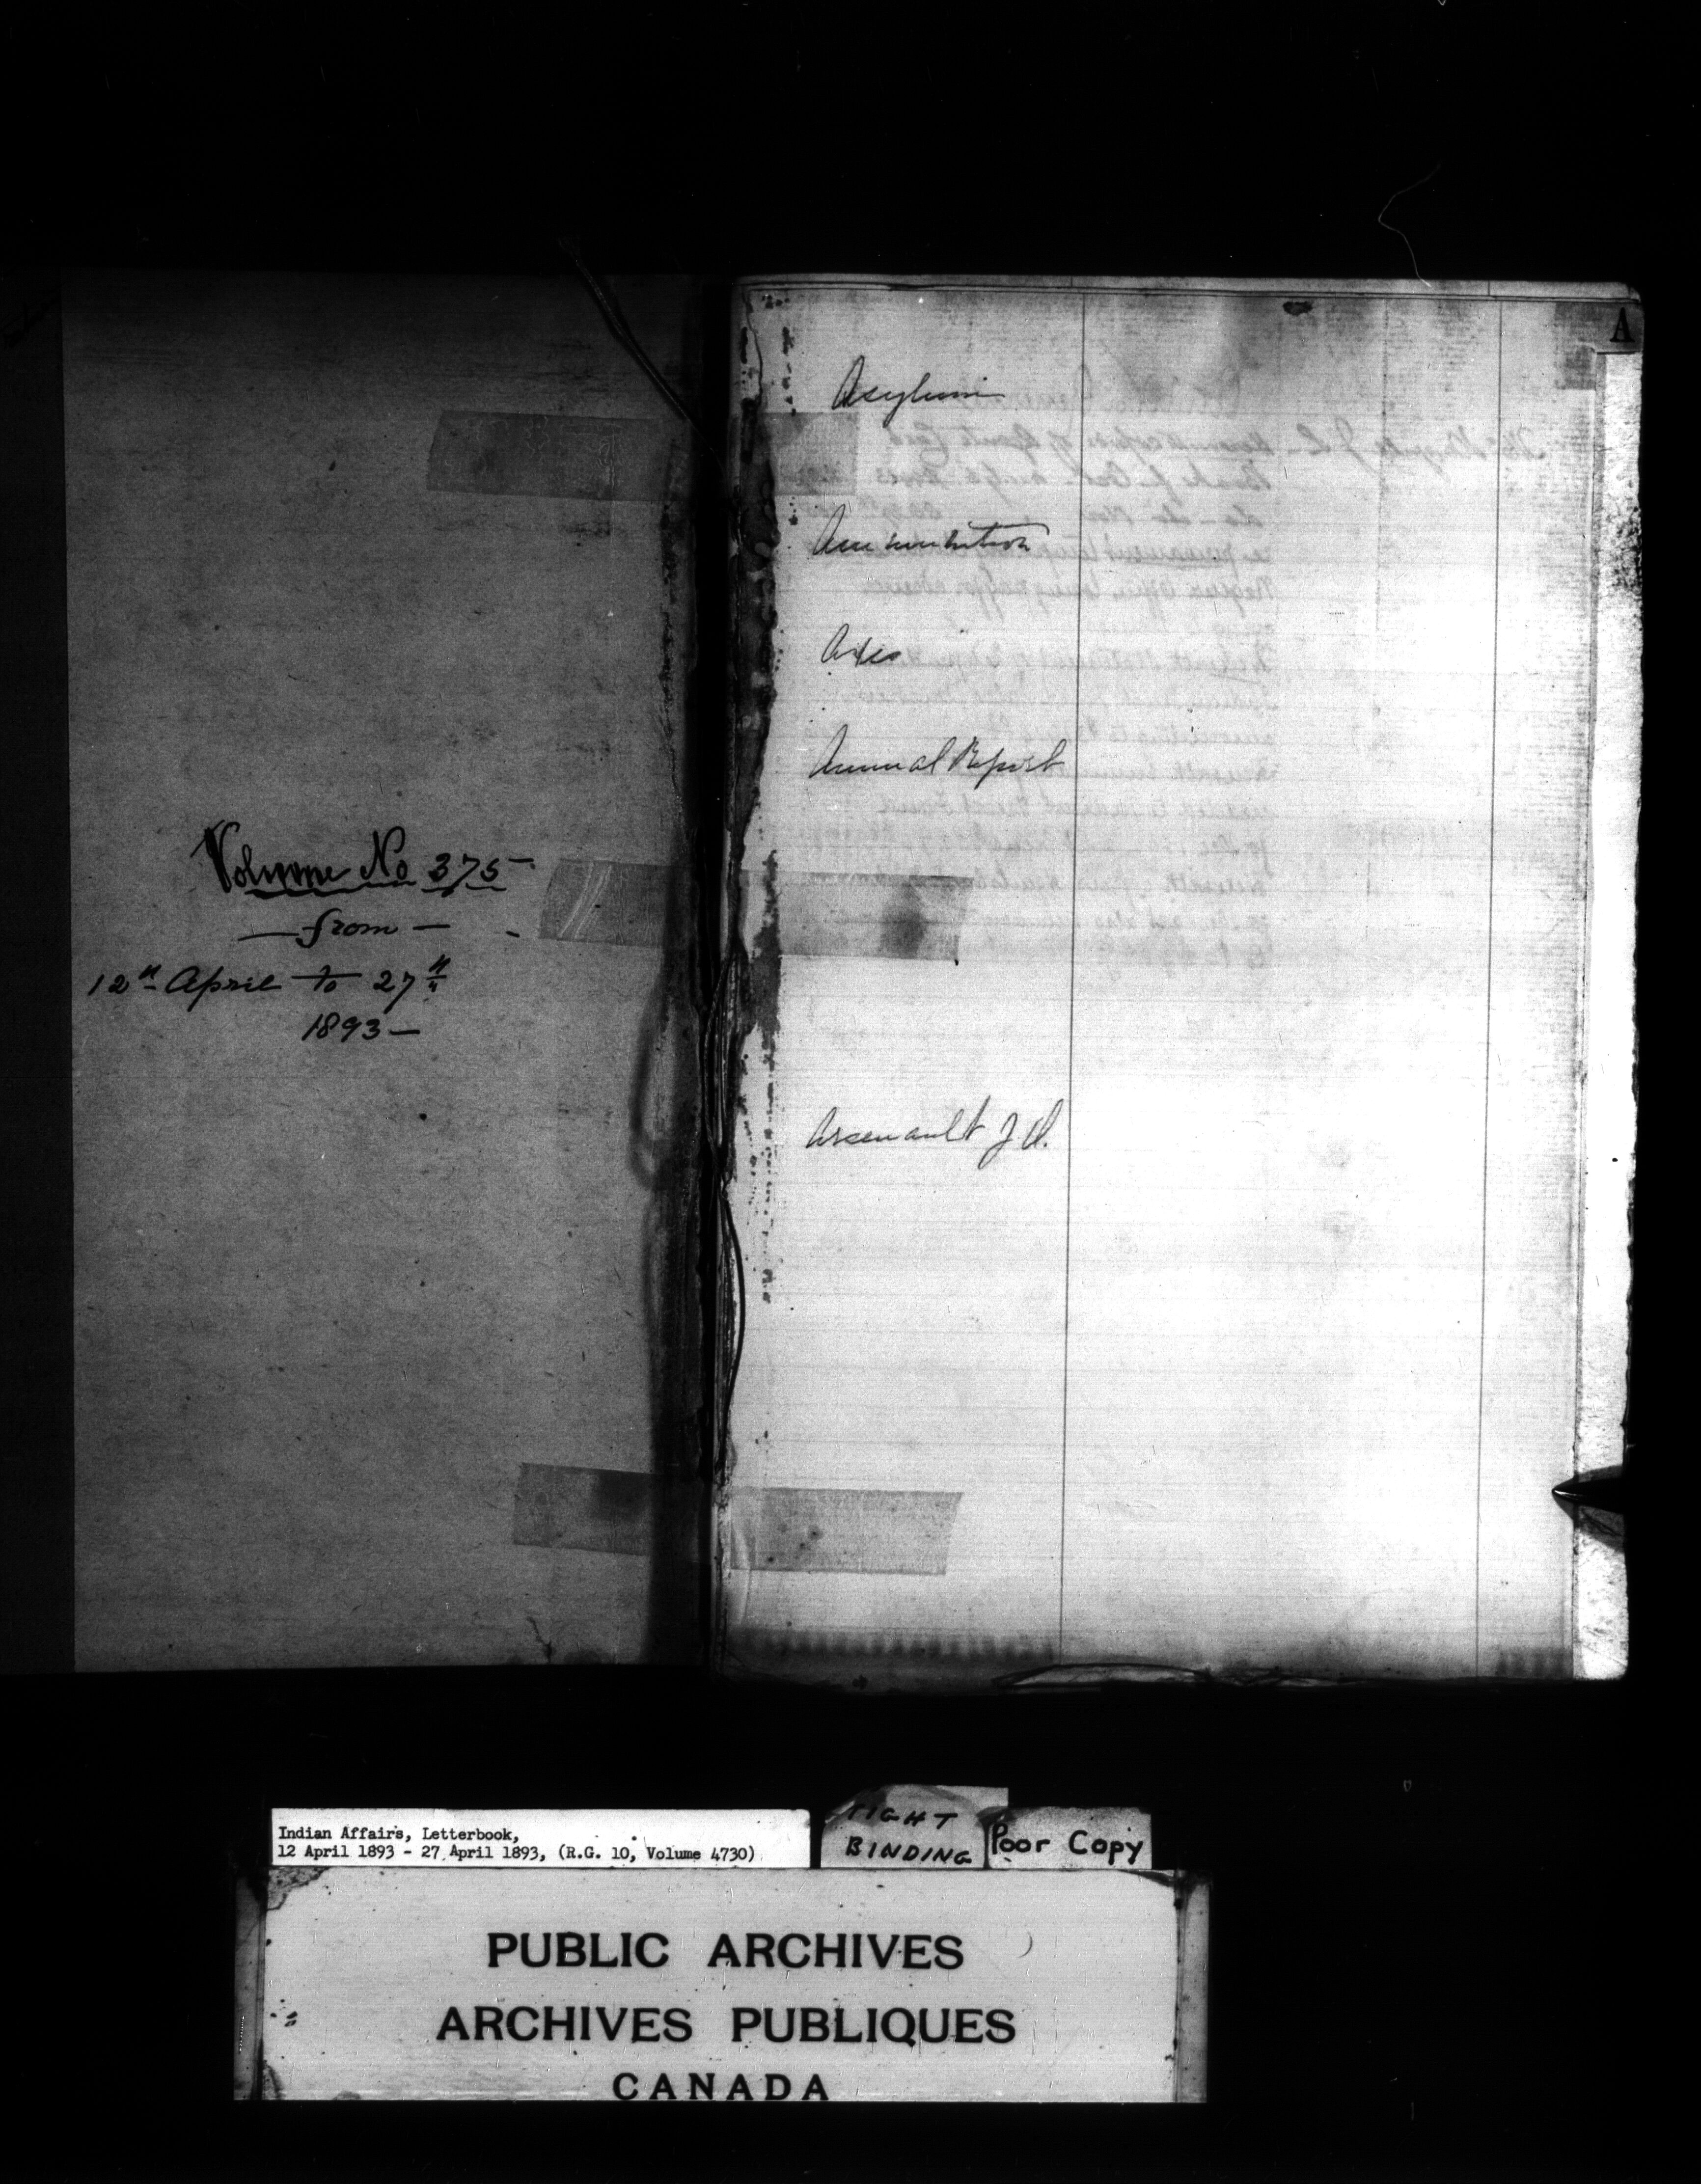 Volume No 375
— from —
12th April to 27th
1893 —
A
Asylum
Ammunition
Axes
Annual Report
Arsenault J O.
Indian Affairs, Letterbook,
12 April 1893 - 27 April 1893, (R.G. 10, Volume 4730)
TIGHT
BINDING
Poor Copy
PUBLIC ARCHIVES
ARCHIVES PUBLIQUES
CANADA